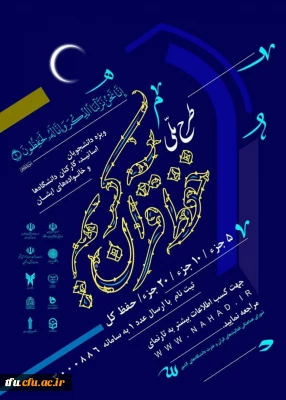 إِنَّا نَحْنُ نَزَّلْنَا الذِّكْرَ وَإِنَّا لَهُ لَحَافِظُونَ
طرح ملی
حفظ قرآن کریم
ویژه دانشجویان
اساتید، کارکنان دانشگاه‌ها
و خانواده‌های ایشان
۵ جزء / ۱۰ جزء / ۲۰ جزء / حفظ کل
ثبت نام با ارسال عدد ۱ به سامانه
جهت کسب اطلاعات بیشتر به تارنمای
WWW.NAHAD.IR
مراجعه نمایید.
tfu.cfu.ac.ir